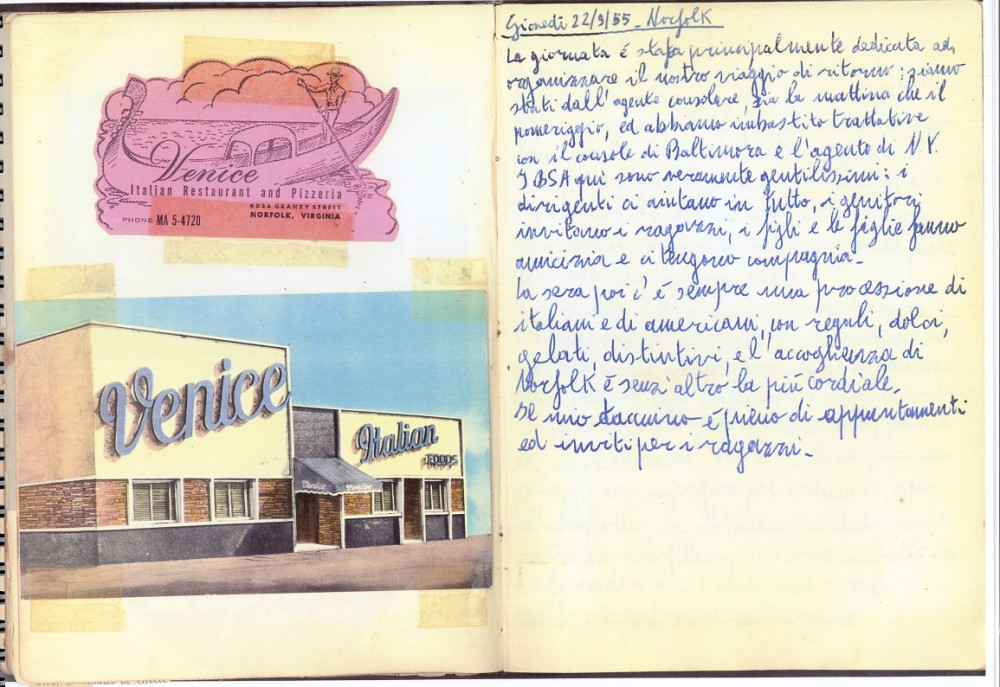 Venice
Italian Restaurant and Pizzeria
4024 GRANBY STREET
NORFOLK, VIRGINIA
PHONE MA 5-4720
Venice
Italian
FOODS
Venice
Giovedì 22/9/55 - Norfolk
La giornata é stata principalmente dedicata ad
organizzare il nostro viaggio di ritorno: siamo
stati dall'agente consolare, sia la mattina che il
pomeriggio, ed abbiamo imbastito trattative
con il console di Baltimora e l'agente di N.Y.
I BSA qui sono veramente gentilissimi: i
dirigenti ci aiutano in tutto, i genitori
invitano i ragazzi, i figli e le figlie fanno
amicizia e ci tengono compagnia.
La sera poi c'é sempre una processione di
italiani e di americani, con regali, dolci,
gelati, distintivi, e l'accoglienza di
Norfolk é senz'altro la più cordiale.
Il mio taccuino é pieno di appuntamenti
ed inviti per i ragazzi.